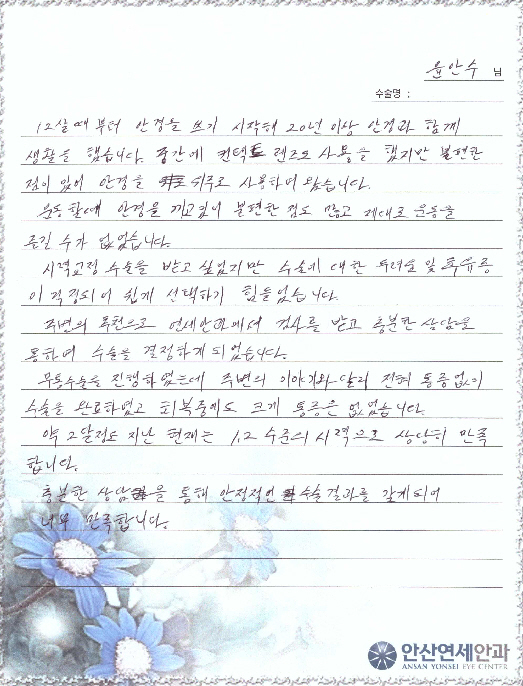 윤안수 님
수술명 :
12살 때부터 안경을 쓰기 시작해 20년 이상 안경과 함께
생활을 했습니다. 중간에 컨텍트 렌즈도 사용을 했지만 불편한
점이 있어 안경을 위주로 사용하여 왔습니다.
운동할때 안경을 끼고있어 불편한 점도 많고 제대로 운동을
즐길 수가 없었습니다.
시력교정 수술을 받고 싶었지만 수술에 대한 두려움 및 후유증
이 걱정되어 쉽게 선택하기 힘들었습니다.
주변의 추천으로 연세안과에서 검사를 받고 충분한 상담을
통하여 수술을 결정하게 되었습니다.
무통수술을 진행하였는데 주변의 이야기와 달리 전혀 통증없이
수술을 완료하였고 회복중에도 크게 통증은 없었습니다.
약 2달정도 지난 현재는 1.2 수준의 시력으로 상당히 만족
합니다.
충분한 상담을 통해 안정적인 수술결과를 갖게되어
너무 만족합니다.
안산연세안과
ANSAN YONSEI EYE CENTER